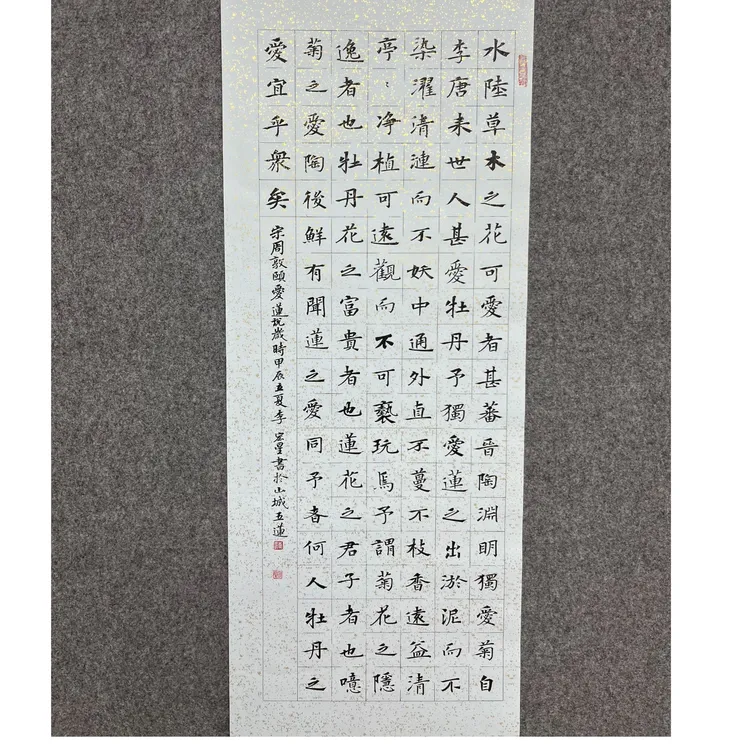 水陸草木之花可愛者甚蕃晉陶淵明獨愛菊自
李唐来世人甚愛牡丹予獨愛蓮之出淤泥而不
染濯清漣而不妖中通外直不蔓不枝香遠益清
亭〻净植可遠觀而不可褻玩焉予謂菊花之隱
逸者也牡丹花之富貴者也蓮花之君子者也噫
菊之愛陶後鮮有聞蓮之愛同予者何人牡丹之
愛宜乎衆矣
宋周敦頤愛蓮説歲時甲辰五夏李宏星書於山城五蓮